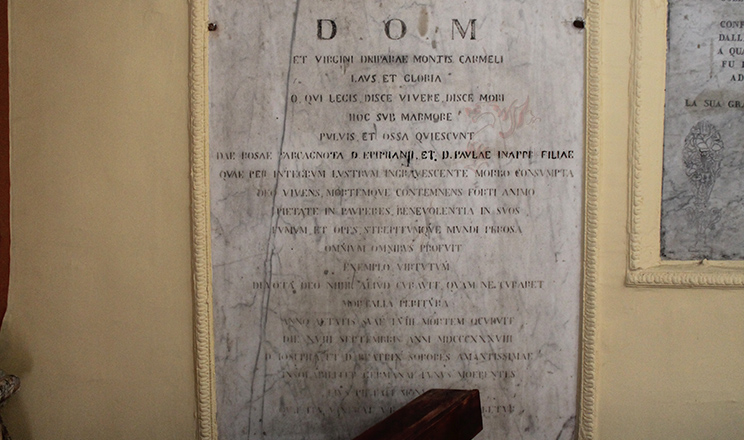 D O M
ET VIRGINI DEIPARAE MONTIS CARMELI
LAVS, ET GLORIA
O, QVI LEGIS, DISCE VIVERE, DISCE MORI
HOC SVB MARMORE
PVLVIS, ET OSSA QVIESCVNT
DAE ROSAE TARCAGNOTA D EPIPHANII, ET, D PAVLAE INAPPI FILIAE
QVAE PER INTEGRVM LVSTRVM INGRAVESCENTE MORBO CONSVMPTA
DEO VIVENS, MORTEMQVE CONTEMNENS FORTI ANIMO
PIETATE IN PAVPERES, BENEVOLENTIA IN SVOS
FVMVM, ET OPES, STREPITVMQVE MVNDI PEROSA
OMNIVM OMNIBVS PROFVIT
EXEMPLO VIRTVTVM
DEVOTA DEO NIHIL ALIVD CVRAVIT, QVAM NE CVRARET
MORTALIA PERITVRA
ANNO AETATIS SVAE LVIII MORTEM
DIE XVIII SEPTEMBRIS ANNI MDCCCXXXVIII
ET D BEATRIX SORORES AMANTISSIMAE
GERMANAE FVNVS MOERENTES
DALL
A QUA
FU
AD
LA SUA GRA